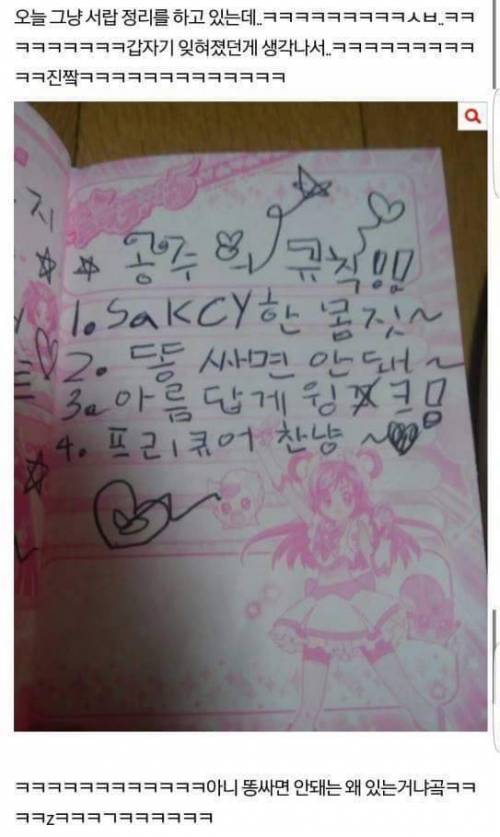 오늘 그냥 서랍 정리를 하고 있는데..ㅋㅋㅋㅋㅋㅋㅋㅋㅋㅅㅂ..ㅋㅋ
ㅋㅋㅋㅋㅋㅋㅋ갑자기 잊혀졌던게 생각나서..ㅋㅋㅋㅋㅋㅋㅋㅋㅋ
ㅋㅋ진짴ㅋㅋㅋㅋㅋㅋㅋㅋㅋㅋㅋㅋㅋ
공주의 규칙!!
1. SaKCY한 몸짓~
2. 똥 싸면 안돼~
3. 아름답게 윙크
4. 프리큐어 찬냥~
ㅋㅋㅋㅋㅋㅋㅋㅋㅋㅋㅋ아니 똥싸면 안돼는 왜 있는거냐곸ㅋㅋ
ㅋㅋzㅋㅋㅋㄱㅋㅋㅋㅋㅋㅋ